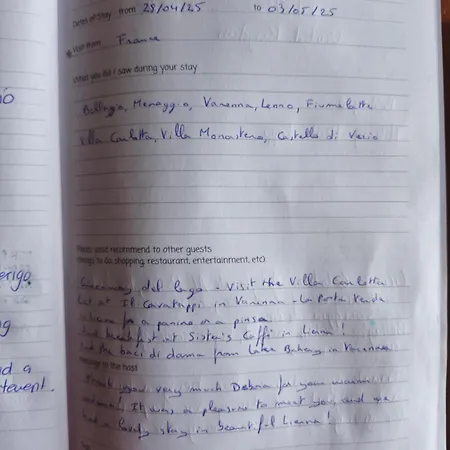 Dates of Stay from 28/04/25 to 03/05/25
Visit from France
What you did / saw during your stay
Bellagio, Menaggio, Varenna, Lenno, Fiumelatte
Villa Carlotta, Villa Monastero, Castello di Vezio
Places you'd recommend to other guests
(things to do shopping, restaurant, entertainment, etc)
Greenway del lago - Visit the Villa Carlotta
Eat at Il Cavatappi in Varenna - La Porta Verde
in Lierna for a panino or a pinsa
breakfast at Sister's Caffé in Lierna!
the baci di dama from Lake Bakery in Varenna
Message to the host
Thank you very much Debora for your warm
welcome! It was a pleasure to meet you, and we
had a lovely stay in beautiful Lierna!
erigo
ng
d a